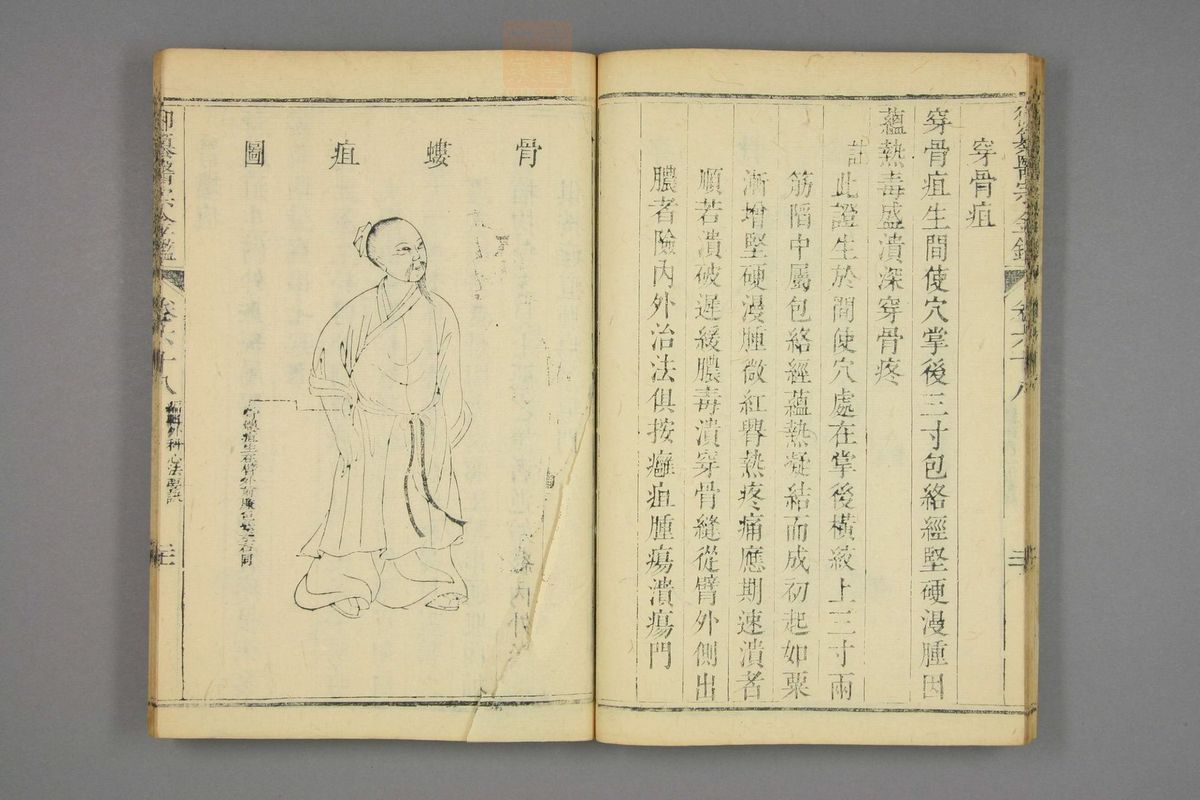 穿骨疽
穿骨疽生間使穴掌後三寸包絡經堅硬漫腫因
蘊熱毒盛潰深穿骨疼
註此證生於間使穴處在掌後橫紋上三寸兩
筋陷中屬包絡經蘊熱凝結而成初起如粟
漸增堅硬漫腫微紅臀熱疼痛應期速潰者
順若潰破遲緩膿毒潰穿骨縫從臂外側出
膿者險內外治法俱按癰疽腫瘍潰瘍門
卷六十八
骨螻疽圖
御纂醫宗金鑑
卷六十八
編輯外科心法要訣